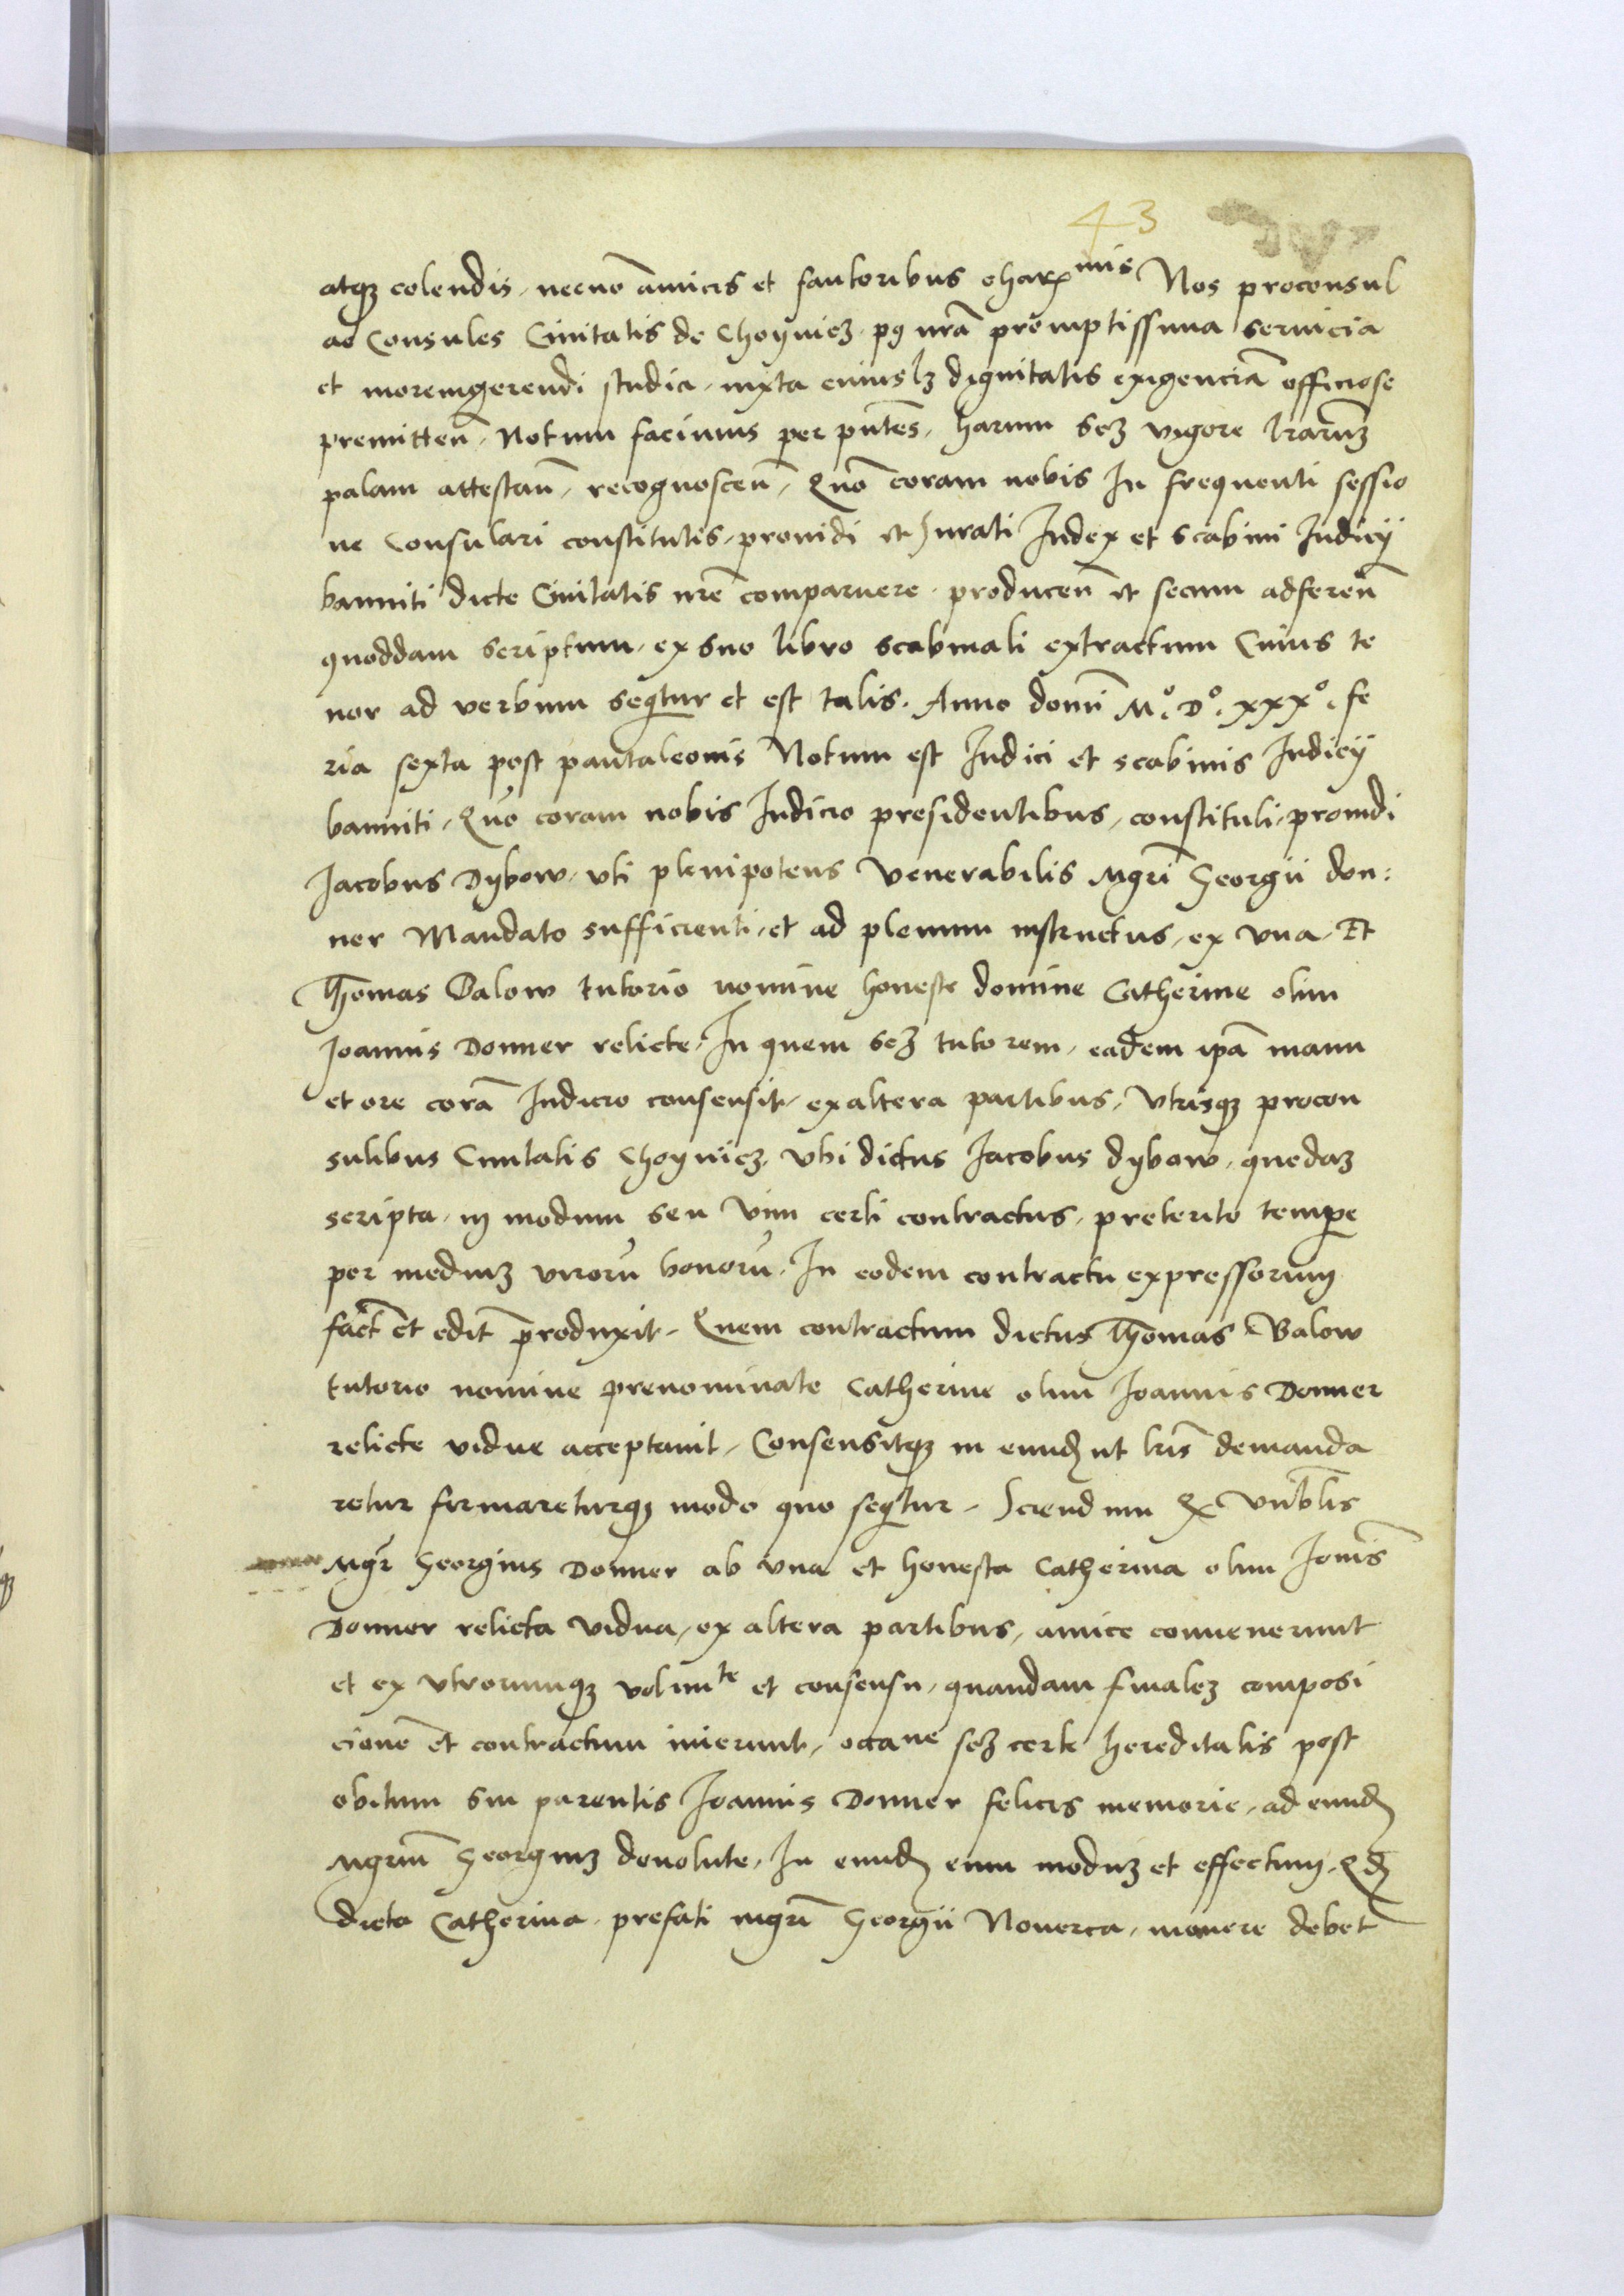 43
atqz colendis, necnō amicis et fautoribus charx̄mis Nos proconsul
ac Consules Ciuitatis de Choyniez p9 nrā promptissima seruicia
et moremgerendi studia, iuxta cuiuslz dignitatis exigenciā officiose
premitteñ, Notum facimus per pñtes, harum scz vigore lrarūz
palam attestañ, recognosceñ, Quō coram nobis In frequenti sessio
ne Consulari constitutis, prouidi et Jurati Iudex et scabini Iudicij
banniti dicte Ciuitatis nrē comparuere, produceñ et secum adfereñ
quoddam scriptum, ex suo libro scabinali extractum Cuius te
nor ad verbum sequitur et est talis. Anno domī Mº. Dº. xxxº. fe
ria sexta post pantaleonis Notum est Iudici et scabinis Iudicij
banniti, Quō coram nobis Iudicio presidentibus, constituti, prouidi
Jacobus Dybow, vti plenipotens Venerabilis Mgrī Georgii don:
ner Mandato sufficienti, et ad plenum instructus, ex vna, Et
Thomas Balow tutorio nomine honeste domine Catherine olim
Joannis Donner relicte, In quem scz tutorem, eadem ipā manu
et ore corā Iudicio consensit, ex altera partibus, Vtrisqz procon
sulibus Ciuitatis Choyniez, Vbi dictus Jacobus dybow, quedaz
scripta, in modum seu vim certi contractus, preterito tempe
per mediuz virorū bonorū, In eodem contractu expressorum
fact et edit produxit, Quem contractum dictus Thomas Balow
tutorio nomine prenominate Catherine olim Joannis Donner
relicte vidue acceptauit, Consensitqz in eundz ut lris demanda
retur firmareturqz modo quo sequitur, Sciendum Vn̄blis
Mgr̄ Georgius Donner ab vna et honesta Catherina olim Joñis
Donner relicta vidua, ex altera partibus, amice conuenerunt
et ex vtrorumqz volunte et consensu, quandam finalez composi
cionē et contractum inierunt, scz certe hereditatis post
obitum sui parentis Joannis Donner felicis memorie, ad eundz
Mgrum̄ Georgiuz deuolute, In eundz eum moduz et effectum, Qd
dicta Catherina, prefati mgrī Georgii Nouerca, manere debet